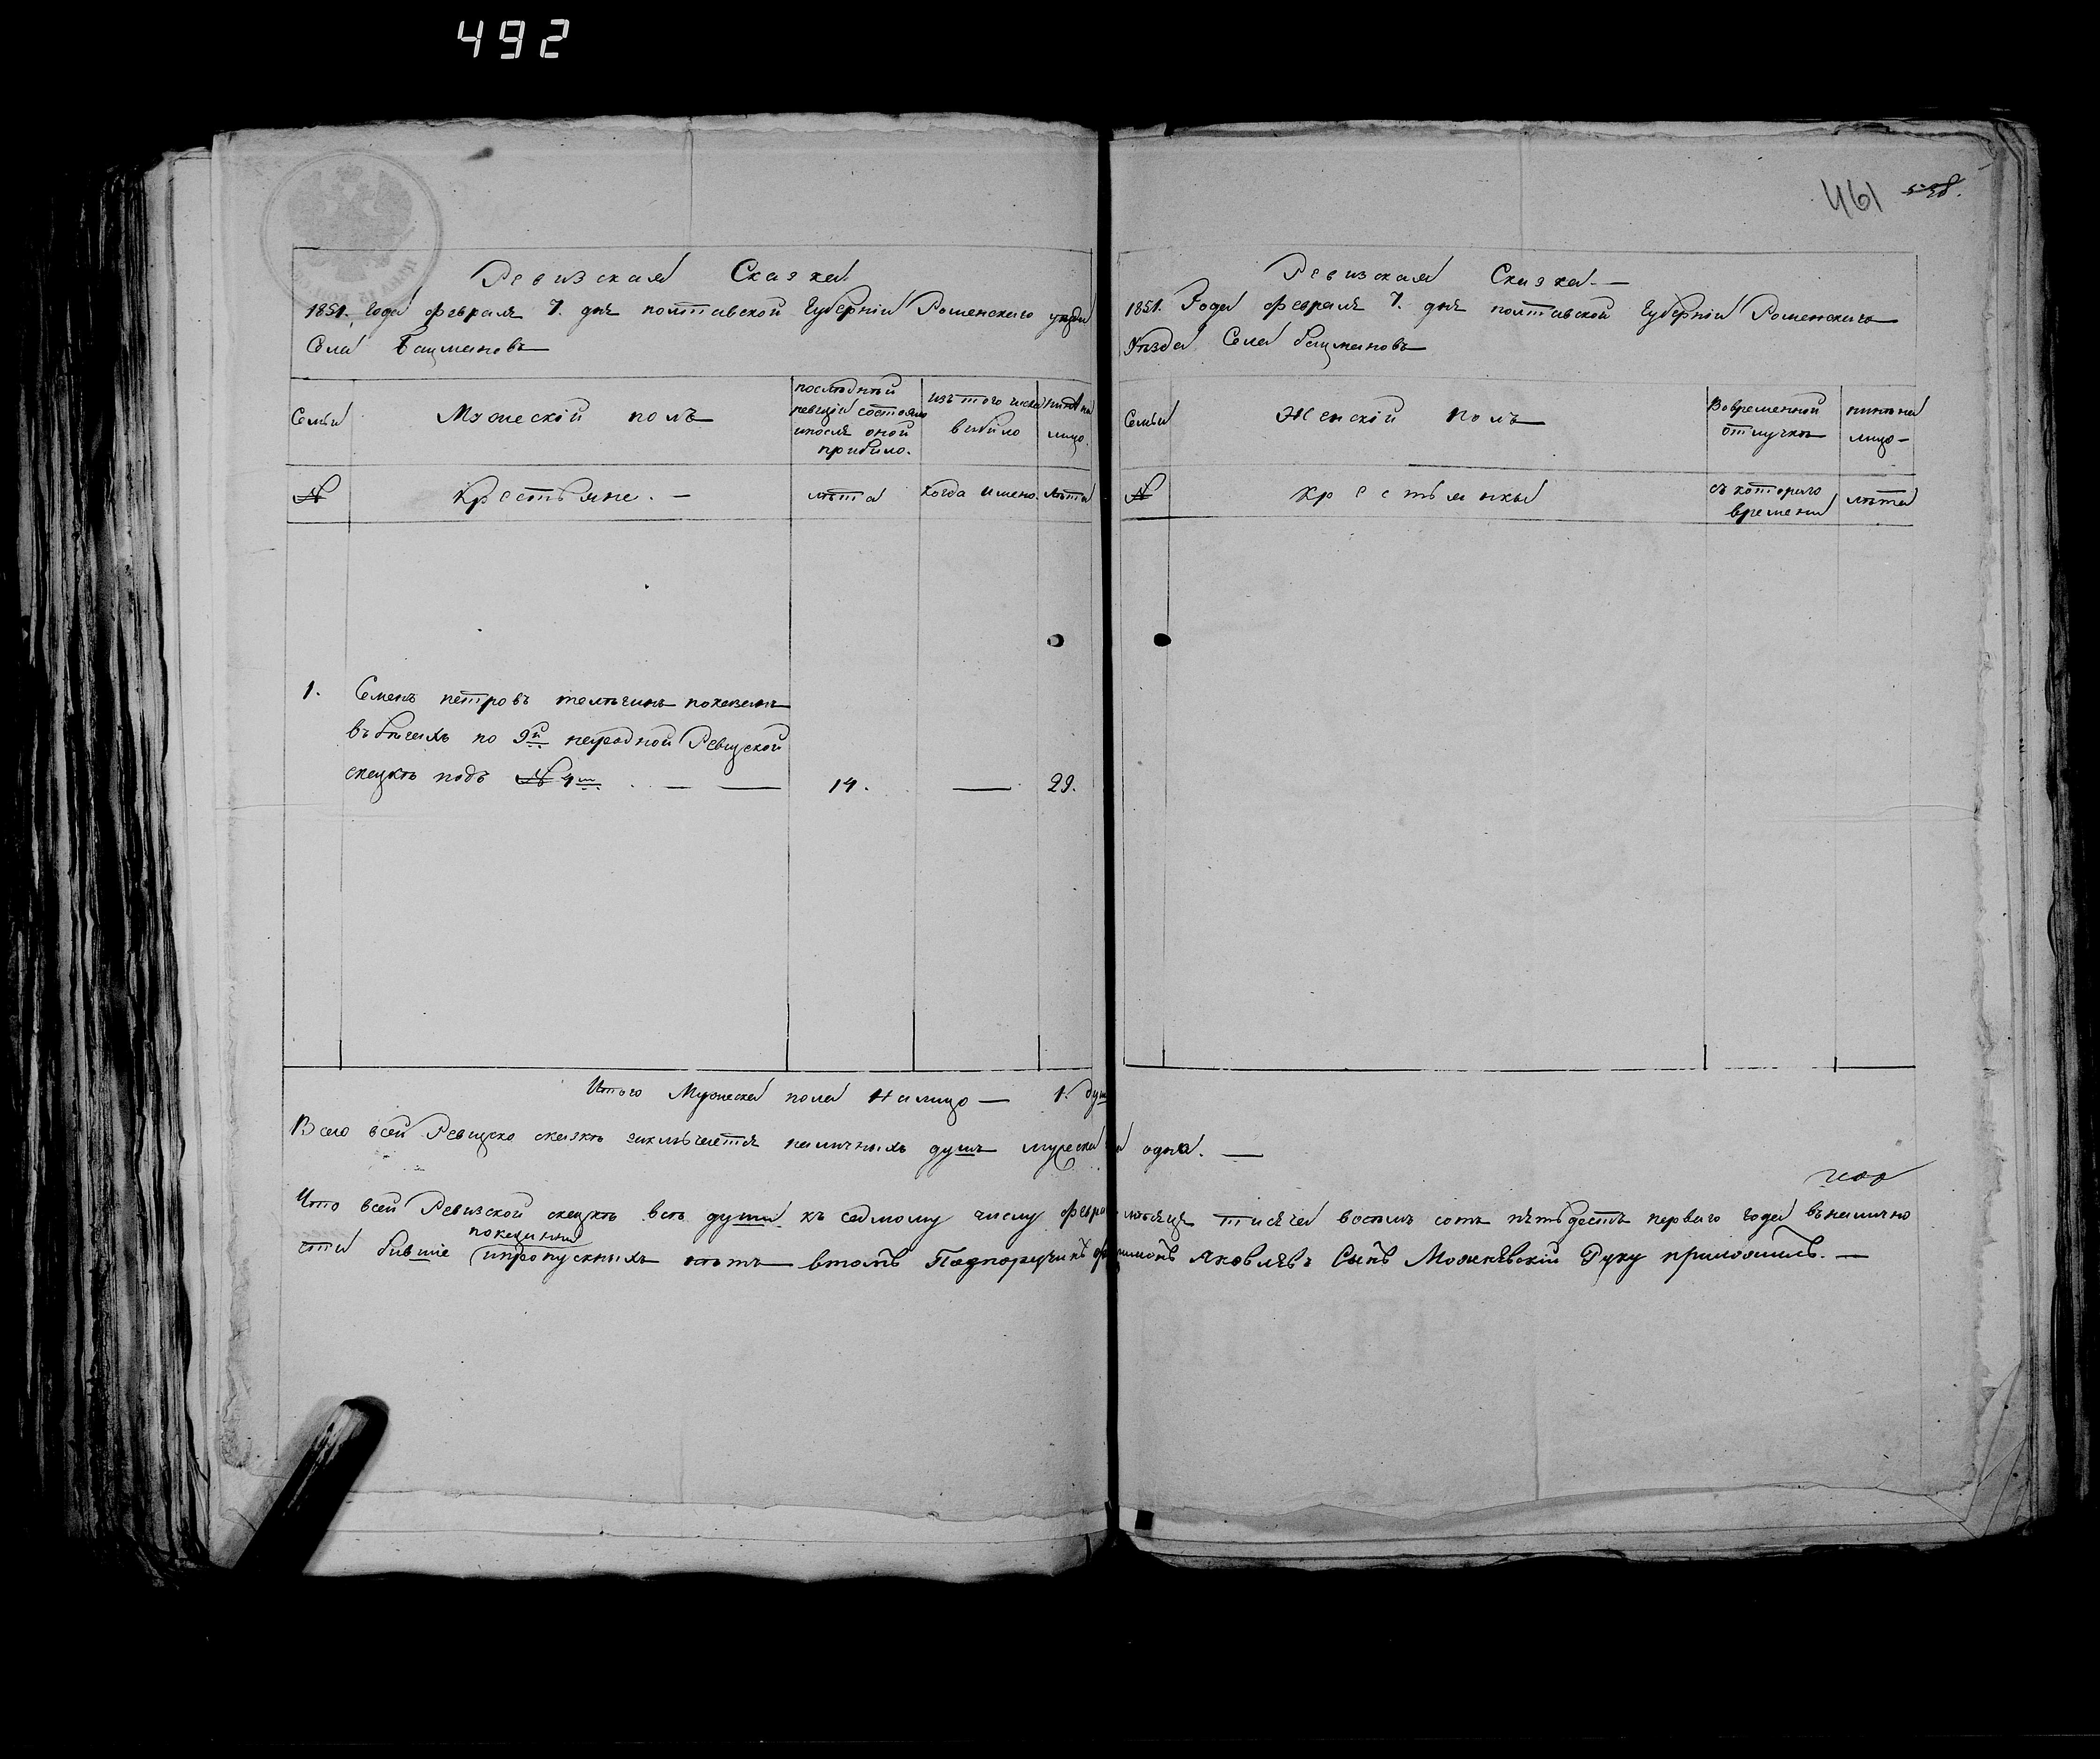 492
461
538.
Ревизская Сказка
1851. Года февраля 7. дня полтавской Губерніи Роменскаго уезда
Села Бацмановъ
Семьи
Мужескій полъ
последней
ревизіи состояло
ипосля оной
прибыло.
изъ того числа
выбыло
ныне на
лицо.
№
Крестьяне. —
лета
Когда имено.
лета
1. Семенъ петровъ показанъ
въ бегахъ по 9й народной Ревизской
сказке подъ № 4м — — 14. — 29.
Итого Мужеска пола На лицо — 1. душ
Ревизская Сказка. —
1851. Года февраля 7. дня полтавской Губерніи Роменскаго
Уезда Села Бацмановъ
Семьи
Женскій полъ
Вовременной
отлучке
ныне на
лицо —
№
Крестьянки
съ котораго
времени
лета
Всего всей Ревизско сказке заключается наличныхъ душъ мужеска одна. —
Что всей Ревизской сказке все души къ седмому числу февра месяца тисяча восемъ сотъ пятьдесятъ перваго года въналично
показанны
сти бившіе ипропускныхъ нетъ втомъ Подпоручикъ Яковлевъ Сынъ Можневскій Руку приложилъ. —